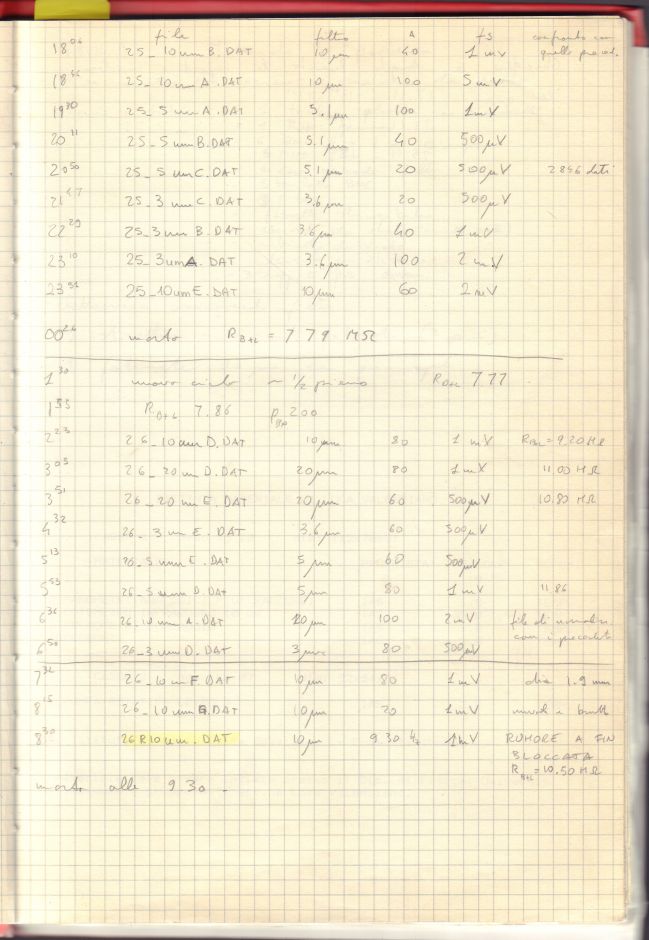 file filtro A fs confronto con
18 06 25_10um B.DAT 10 μm 40 1 mV quelle preced.
18 56 25_10um A.DAT 10 μm 100 5 mV
19 30 25_5um A.DAT 5.1 μm 100 1mV
20 11 25_5um B.DAT 5.1 μm 40 500μV
20 50 25_5um C.DAT 5.1 μm 20 500μV 2846 dati
21 47 25_3um C.DAT 3.6 μm 20 500μV
22 29 25_3um B.DAT 3.6 μm 40 1mV
23 10 25_3umA.DAT 3.6 μm 100 2 mV
23 56 25_10umE.DAT 10 μm 60 2mV
00 26 morto R B+L = 7.79 MΩ
1 30 nuovo ciclo ~ 1/2 pieno R B+L 7.77
1 55 R B+L 7.86 200
2 23 26_10um D.DAT 10 μm 80 1 mV R B+L = 9.20 MΩ
3 05 26_20um D.DAT 20μm 80 1mV 11.00 MΩ
3 51 26_20um E.DAT 20μm 60 500μV 10.80 MΩ
4 32 26_3um E.DAT 3.6 μm 60 500μV
5 13 26_5um E.DAT 5 μm 60 500μV
5 53 26_5um D.DAT 5μm 80 1 mV 11.86
6 36 26_10um A.DAT 10μm 100 2mV file di
6 50 26_3um D.DAT 3μm 80 500μV con i precedenti
7 32 26_10um F.DAT 10μm 80 1mV dia 1.9 mm
8 15 26_10um G.DAT 10μm 20 1mV
8 30 26R10um.DAT 10μm 930 Hz 1mV RUMORE A FIN
BLOCCATA
R B+L = 10.50 MΩ
morto alle 9 30.